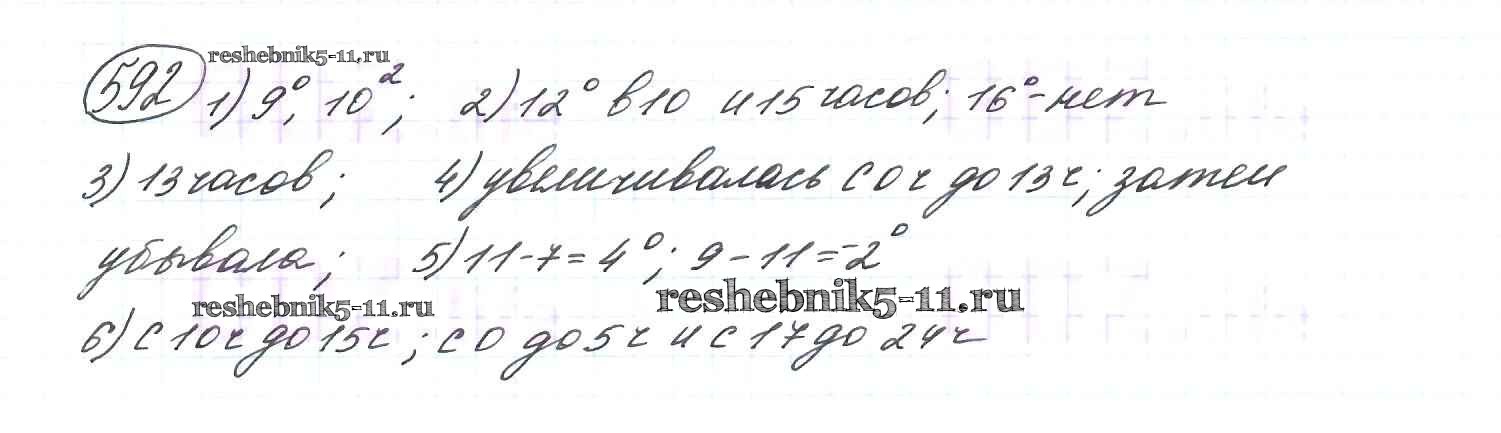 reshebnik5-11.ru
592 1) 9°, 10²; 2) 12° в 10 и 15 часов; 16° - нет
3) 13 часов; 4) увеличивалась с 0ч до 13ч; затем
убывала; 5) 11-7=4°; 9-11=-2°
reshebnik5-11.ru reshebnik5-11.ru
6) с 10ч до 15ч; с 0 до 5ч и с 17 до 24ч